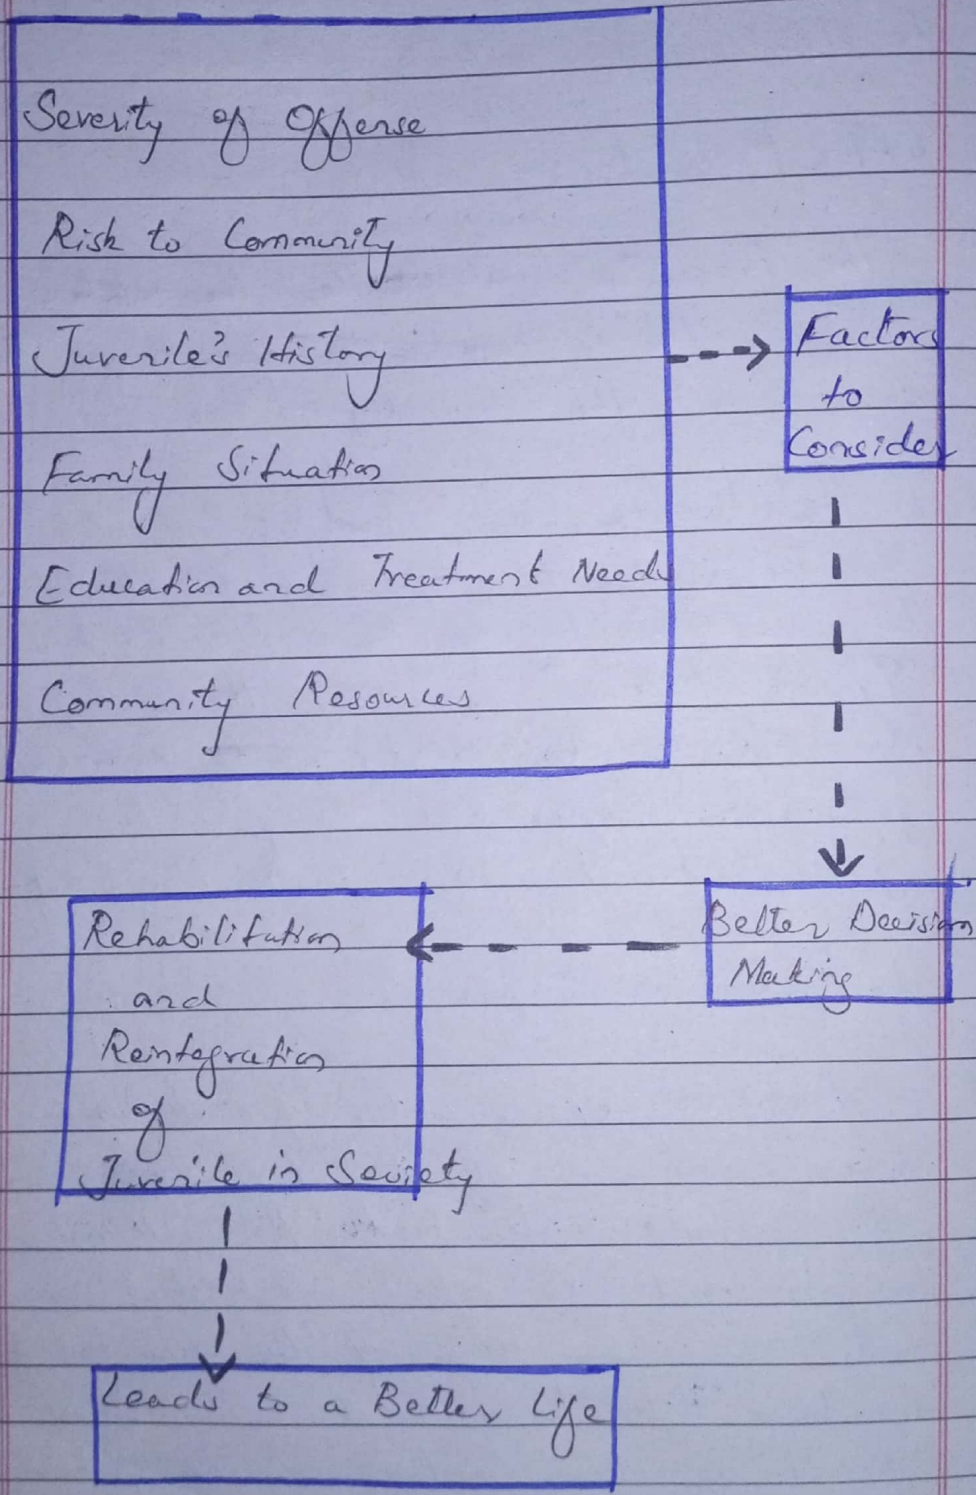 Severity of Offense
Risk to Community
Juvenile's History
Family Situation
Education and Treatment Needs
Community Resources
Factors
to
Consider
Better Decision
Making
Rehabilitation
and
Reintegration
of
Juvenile in Society
Leads to a Better Life